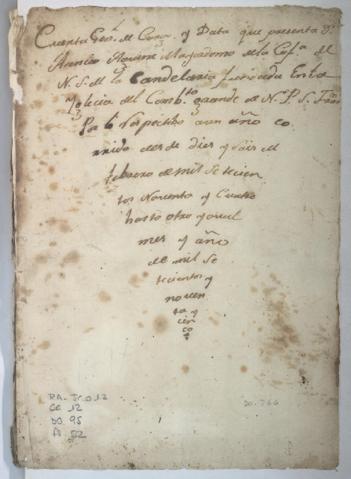 Cuenta Gral. de Cargo y Data que presenta Dn.
Aguirre Mayordomo de la Cofa. de
N. S. de la Candelaria fundada En la
Yglecia del Combto. grande de N. P. S. Fran
Pa lo Respectibo a un año co
rrido desde dies y seis de
febrero de mil setecien
tos Noventa y Cuatro
hasta otro ygual
mes y año
de mil se
tecientos y
noven
ta y
cin
co
RA. Tr o 12
CC 12
DO. 95
fl 52
DO. 766